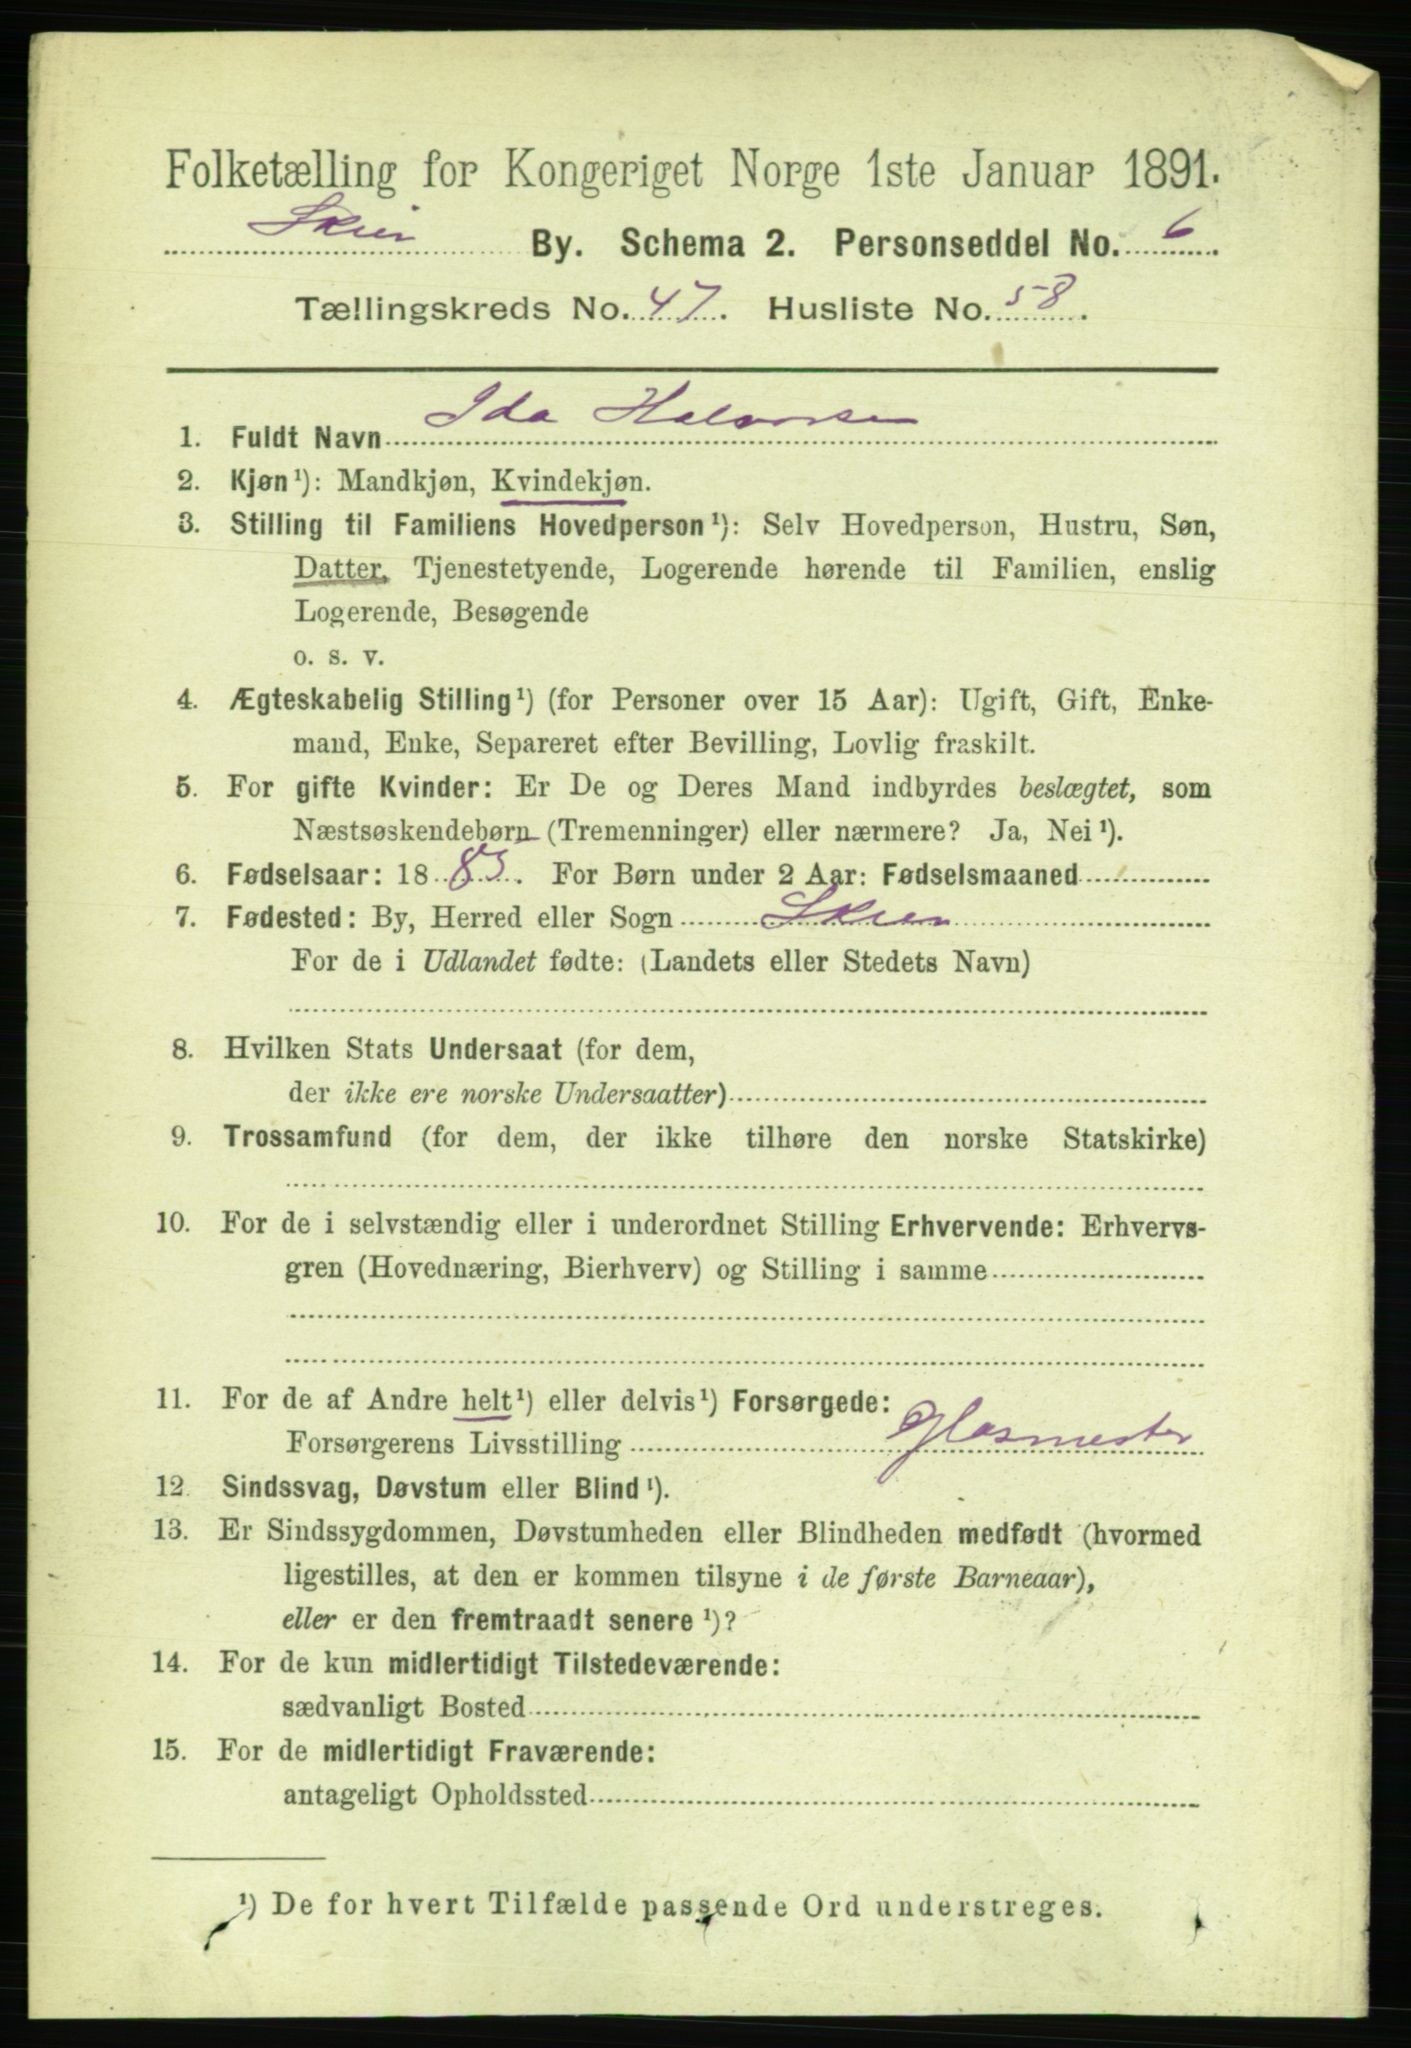 Folketælling for Kongeriget Norge 1ste Januar 1891.
Skien By. Schema 2. Personseddel No. 6
Tællingskreds No. 47. Husliste No. 58.
1. Fuldt Navn Ida Halvorsen
2. Kjøn¹): Mandkjøn, Kvindekjøn.
3. Stilling til Familiens Hovedperson¹): Selv Hovedperson, Hustru, Søn,
Datter, Tjenestetyende, Logerende hørende til Familien, enslig
Logerende, Besøgende
o. s. v.
4. Ægteskabelig Stilling¹) (for Personer over 15 Aar): Ugift, Gift, Enke-
mand, Enke, Separeret efter Bevilling, Lovlig fraskilt.
5. For gifte Kvinder: Er De og Deres Mand indbyrdes beslægtet, som
Næstsøskendebørn (Tremenninger) eller nærmere? Ja, Nei¹).
6. Fødselsaar: 1885. For Børn under 2 Aar: Fødselsmaaned
7. Fødested: By, Herred eller Sogn Skien
For de i Udlandet fødte: (Landets eller Stedets Navn)
8. Hvilken Stats Undersaat (for dem,
der ikke ere norske Undersaatter)
9. Trossamfund (for dem, der ikke tilhøre den norske Statskirke)
10. For de i selvstændig eller i underordnet Stilling Erhvervende: Erhvervs-
gren (Hovednæring, Bierhverv) og Stilling i samme
11. For de af Andre helt¹) eller delvis¹) Forsørgede:
Forsørgerens Livsstilling Glasmester
12. Sindssvag, Døvstum eller Blind¹).
13. Er Sindssygdommen, Døvstumheden eller Blindheden medfødt (hvormed
ligestilles, at den er kommen tilsyne i de første Barneaar),
eller er den fremtraadt senere¹)?
14. For de kun midlertidigt Tilstedeværende:
sædvanligt Bosted
15. For de midlertidigt Fraværende:
antageligt Opholdssted
¹) De for hvert Tilfælde passende Ord understreges.